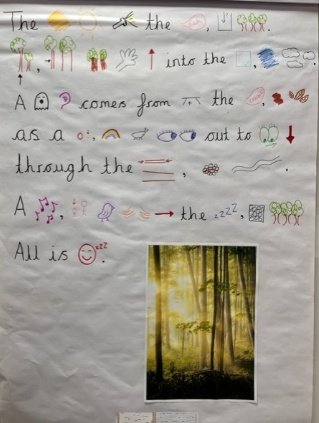 The the , .
, into the , .
A comes from the ,
as a , out to
through the , .
A , the zzzz,
All is zzz.